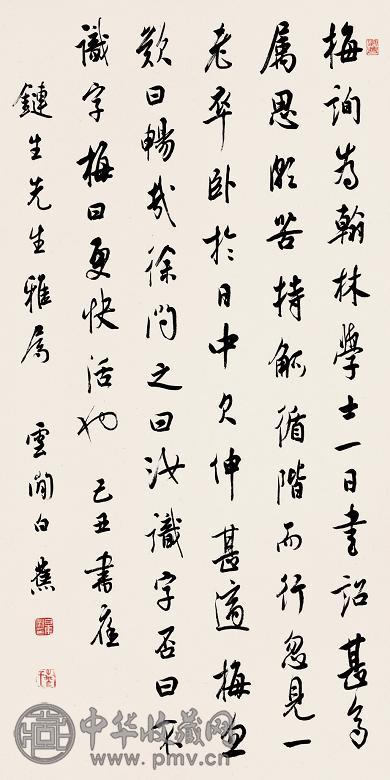 梅詢為翰林學士一日書詔甚多
屬思頗苦持觚循階而行忽見一
老卒臥於日中欠伸甚適梅忽
歎曰暢哉徐問之曰汝識字否曰不
識字梅曰更快活也 己丑
鏈生先生雅屬 雲間白蕉
中华收藏网
www.pmv.cn